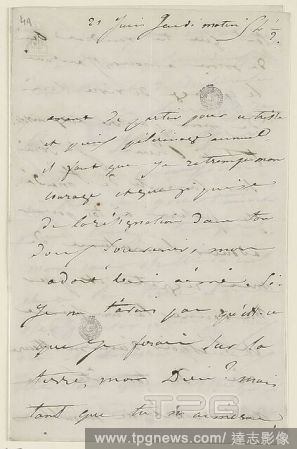 49
21 Juin Jeudi matin 8h ½
avant de partir pour ce triste
et pieux pélerinage annuel
il faut que je retrempe mon
courage et que je puise
de la résignation dans ton
doux souvenir, mon
adoré bien aimé. Si
je ne t'avais pas qu'est-ce
que je ferais sur la
terre, mon Dieu? mais
tant que tu m'aimeras
TPG
www.tpgnews.com/達志影像